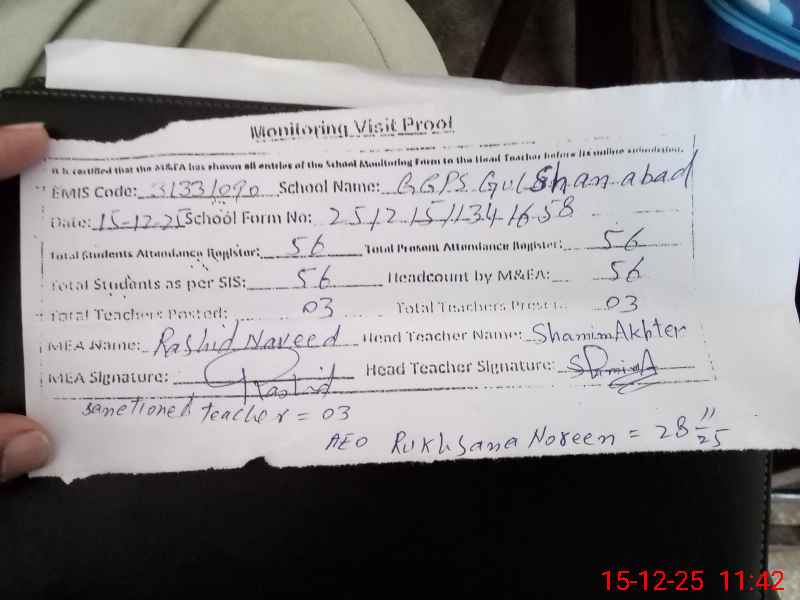 Monitoring Visit Proof
It is certified that the M&EA has shown all entries of the School Monitoring Form to the Head Teacher before its online submission.
EMIS Code: 31331090 School Name: GGPS Gulshan abad
Date: 15-12-25 School Form No: 25121511341658
Total Students Attendance Register: 56 Total Present Attendance Register: 56
Total Students as per SIS: 56 Headcount by M&EA: 56
Total Teachers Posted: 03 Total Teachers Present: 03
MEA Name: Rashid Naveed Head Teacher Name: Shamim Akhter
MEA Signature: Rashid Head Teacher Signature: ShamimA
sanctioned teacher = 03
AEO Rukhsana Noreen = 28 11/25
15-12-25 11:42